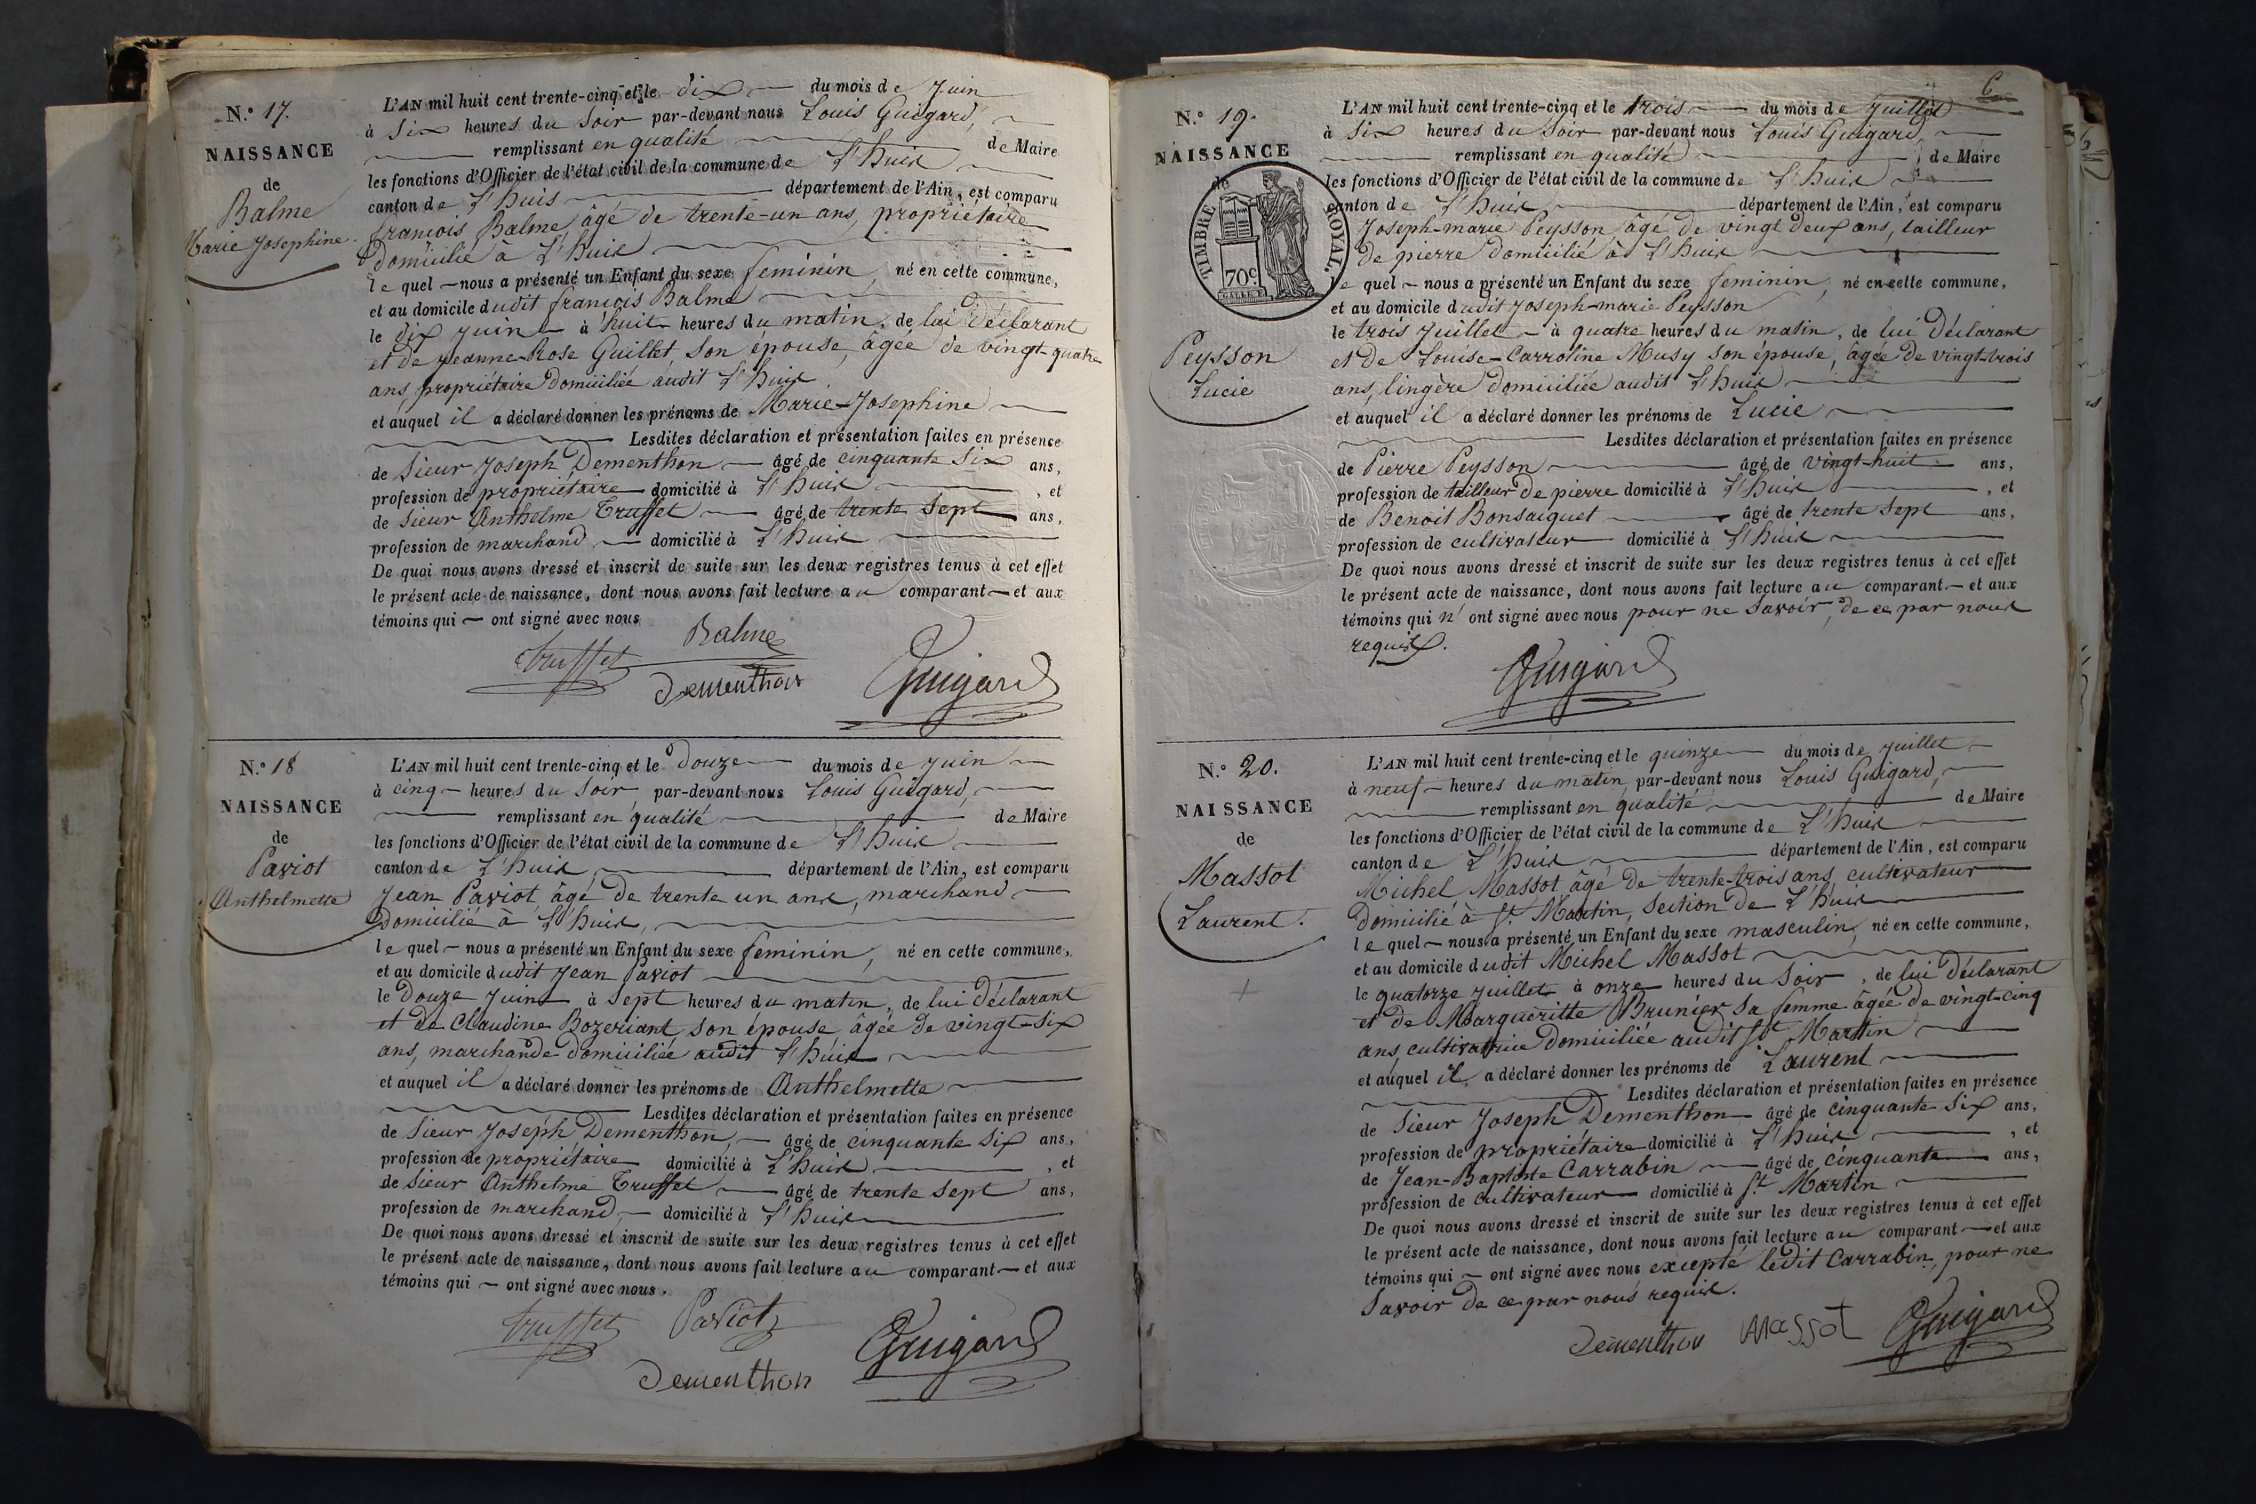 N.º 17.
NAISSANCE
de
Balme
Marie Josephine.
L'AN mil huit cent trente-cinq et le dix du mois de Juin
à six heures du soir par-devant nous Louis Guigard,
remplissant en qualité de Maire
les fonctions d'Officier de l'état civil de la commune de L'huis
canton de L'huis département de l'Ain, est comparu
françois Balme, âgé de trente-un ans, propriétaire
domicilié à L'huis
le quel nous a présenté un Enfant du sexe feminin, né en cette commune,
et au domicile dudit françois Balme
le dix Juin à huit heures du matin, de lui déclarant
et de Jeanne-Rose Guillet, son épouse, âgée de vingt-quatre
ans, propriétaire domiciliée audit L'huis.
et auquel il a déclaré donner les prénoms de Marie-Josephine
Lesdites déclaration et présentation faites en présence
de Sieur Joseph Dementhon âgé de cinquante six ans,
profession de propriétaire domicilié à L'huis, et
de Sieur Anthelme Truffet âgé de trente sept ans,
profession de marchand domicilié à L'huis
De quoi nous avons dressé et inscrit de suite sur les deux registres tenus à cet effet
le présent acte de naissance, dont nous avons fait lecture au comparant et aux
témoins qui ont signé avec nous
Balme
truffet
Dementhon
Guigard
N.º 18
NAISSANCE
de
Paviot
Anthelmette
L'AN mil huit cent trente-cinq et le douze du mois de Juin
à cinq heures du soir par-devant nous Louis Guigard,
remplissant en qualité de Maire
les fonctions d'Officier de l'état civil de la commune de L'huis
canton de L'huis département de l'Ain, est comparu
Jean Paviot âgé de trente un ans, marchand
domicilié à L'huis,
le quel nous a présenté un Enfant du sexe feminin, né en cette commune,
et au domicile dudit Jean Paviot
le douze Juin à sept heures du matin, de lui déclarant
et de Claudine Bozeriant son épouse âgée de vingt-six
ans, marchande domiciliée audit L'huis
et auquel il a déclaré donner les prénoms de Anthelmette
Lesdites déclaration et présentation faites en présence
de Sieur Joseph Dementhon, âgé de cinquante six ans,
profession de propriétaire domicilié à L'huis, et
de Sieur Anthelme Truffet âgé de trente sept ans,
profession de marchand, domicilié à L'huis
De quoi nous avons dressé et inscrit de suite sur les deux registres tenus à cet effet
le présent acte de naissance, dont nous avons fait lecture au comparant et aux
témoins qui ont signé avec nous.
truffet
Paviot
Dementhon
Guigard
6
N.º 19.
NAISSANCE
de
TIMBRE ROYAL.
70c.
Peysson
Lucie
L'AN mil huit cent trente-cinq et le trois du mois de Juillet
à six heures du soir par-devant nous Louis Guigard,
remplissant en qualité de Maire
les fonctions d'Officier de l'état civil de la commune de L'huis
canton de L'huis département de l'Ain, est comparu
Joseph-marie Peysson âgé de vingt deux ans, tailleur
de pierre domicilié à L'huis
le quel nous a présenté un Enfant du sexe feminin, né en cette commune,
et au domicile dudit Joseph-marie Peysson
le trois Juillet à quatre heures du matin, de lui déclarant
et de Louise-Carroline Musy son épouse, âgée de vingt-trois
ans, lingère domiciliée audit L'huis
et auquel il a déclaré donner les prénoms de Lucie
Lesdites déclaration et présentation faites en présence
de Pierre Peysson âgé de vingt-huit ans,
profession de tailleur de pierre domicilié à L'huis, et
de Benoit Bonsaiquet âgé de trente sept ans,
profession de cultivateur domicilié à L'huis
De quoi nous avons dressé et inscrit de suite sur les deux registres tenus à cet effet
le présent acte de naissance, dont nous avons fait lecture au comparant et aux
témoins qui n'ont signé avec nous pour ne savoir, de ce par nous
requis.
Guigard
N.º 20.
NAISSANCE
de
Massot
Laurent.
L'AN mil huit cent trente-cinq et le quinze du mois de Juillet
à neuf heures du matin, par-devant nous Louis Guigard,
remplissant en qualité de Maire
les fonctions d'Officier de l'état civil de la commune de L'huis
canton de L'huis département de l'Ain, est comparu
Michel Massot âgé de trente-trois ans, cultivateur
domicilié à St. Martin, section de L'huis
le quel nous a présenté un Enfant du sexe masculin, né en cette commune,
et au domicile dudit Michel Massot
le quatorze Juillet à onze heures du soir, de lui déclarant
et de Marguéritte Brunier sa femme âgée de vingt-cinq
ans, cultivatrice domiciliée audit St Martin
et auquel il a déclaré donner les prénoms de Laurent
Lesdites déclaration et présentation faites en présence
de Sieur Joseph Dementhon âgé de cinquante six ans,
profession de propriétaire domicilié à L'huis, et
de Jean-Baptiste Carrabin âgé de cinquante ans,
profession de cultivateur domicilié à St. Martin
De quoi nous avons dressé et inscrit de suite sur les deux registres tenus à cet effet
le présent acte de naissance, dont nous avons fait lecture au comparant et aux
témoins qui ont signé avec nous excepté ledit Carrabin, pour ne
savoir de ce par nous requis.
Dementhon
Massot
Guigard